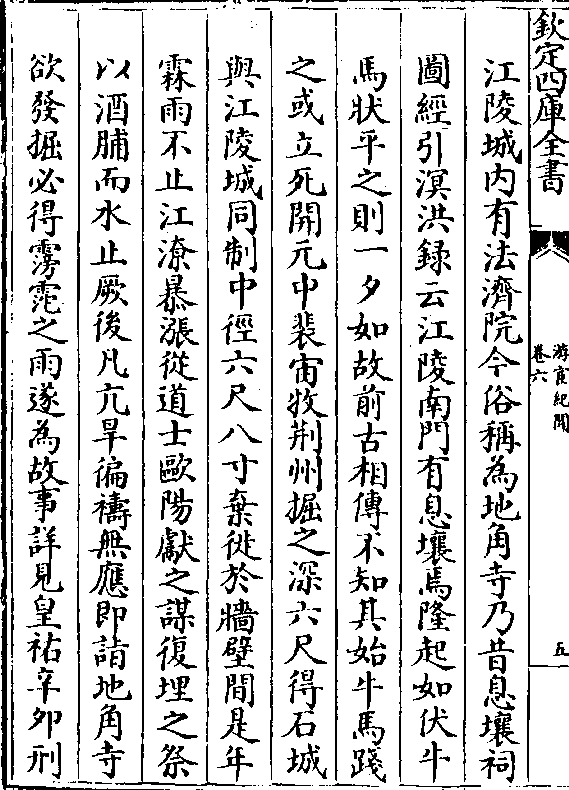 欽定四庫全書
游宦紀聞
卷六
五
江陵城内有法濟院今俗稱為地角寺乃昔息壤祠
圖經引溟洪録云江陵南門有息壤焉隆起如伏牛
馬狀平之則一夕如故前古相傳不知其始牛馬踐
之或立死開元中裴宙牧荆州掘之深六尺得石城
與江陵城同制中徑六尺八寸棄徙於牆壁間是年
霖雨不止江潦暴漲從道士歐陽獻之謀復埋之祭
以酒脯而水止厥後凡亢旱徧禱無應即詣地角寺
欲發掘必得霶霔之雨遂為故事詳見皇祐辛卯刑